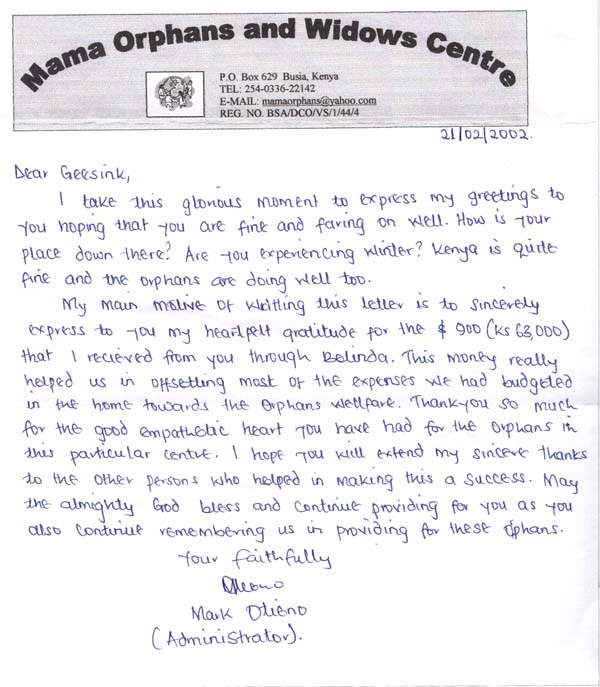 Mama Orphans and Widows Centre
P.O. Box 629 Busia, Kenya
TEL: 254-0336-22142
E-MAIL: mamaorphans@yahoo.com
REG. NO. BSA/DCO/VS/1/44/4
21/02/2002.
Dear Geesink,
I take this glorious moment to express my greetings to
you hoping that you are fine and faring on well. How is your
place down there? Are you experiencing winter? Kenya is quite
fine and the orphans are doing well too.
My main motive of writting this letter is to sincerely
express to you my heartfelt gratitude for the $ 900 (Ks 63,000)
that I recieved from you through Belinda. This money really
helped us in offsetting most of the expenses we had budgeted
in the home towards the orphans wellfare. Thankyou so much
for the good empathetic heart you have had for the orphans in
this particular centre. I hope you will extend my sincere thanks
to the other persons who helped in making this a success. May
the almighty God bless and continue providing for you as you
also continue remembering us in providing for these Orphans.
Your faithfully
Mark Otieno
(Administrator).